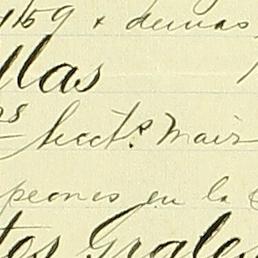 159 & demas
llas
hect.s Mais
peones en la
tos Grales